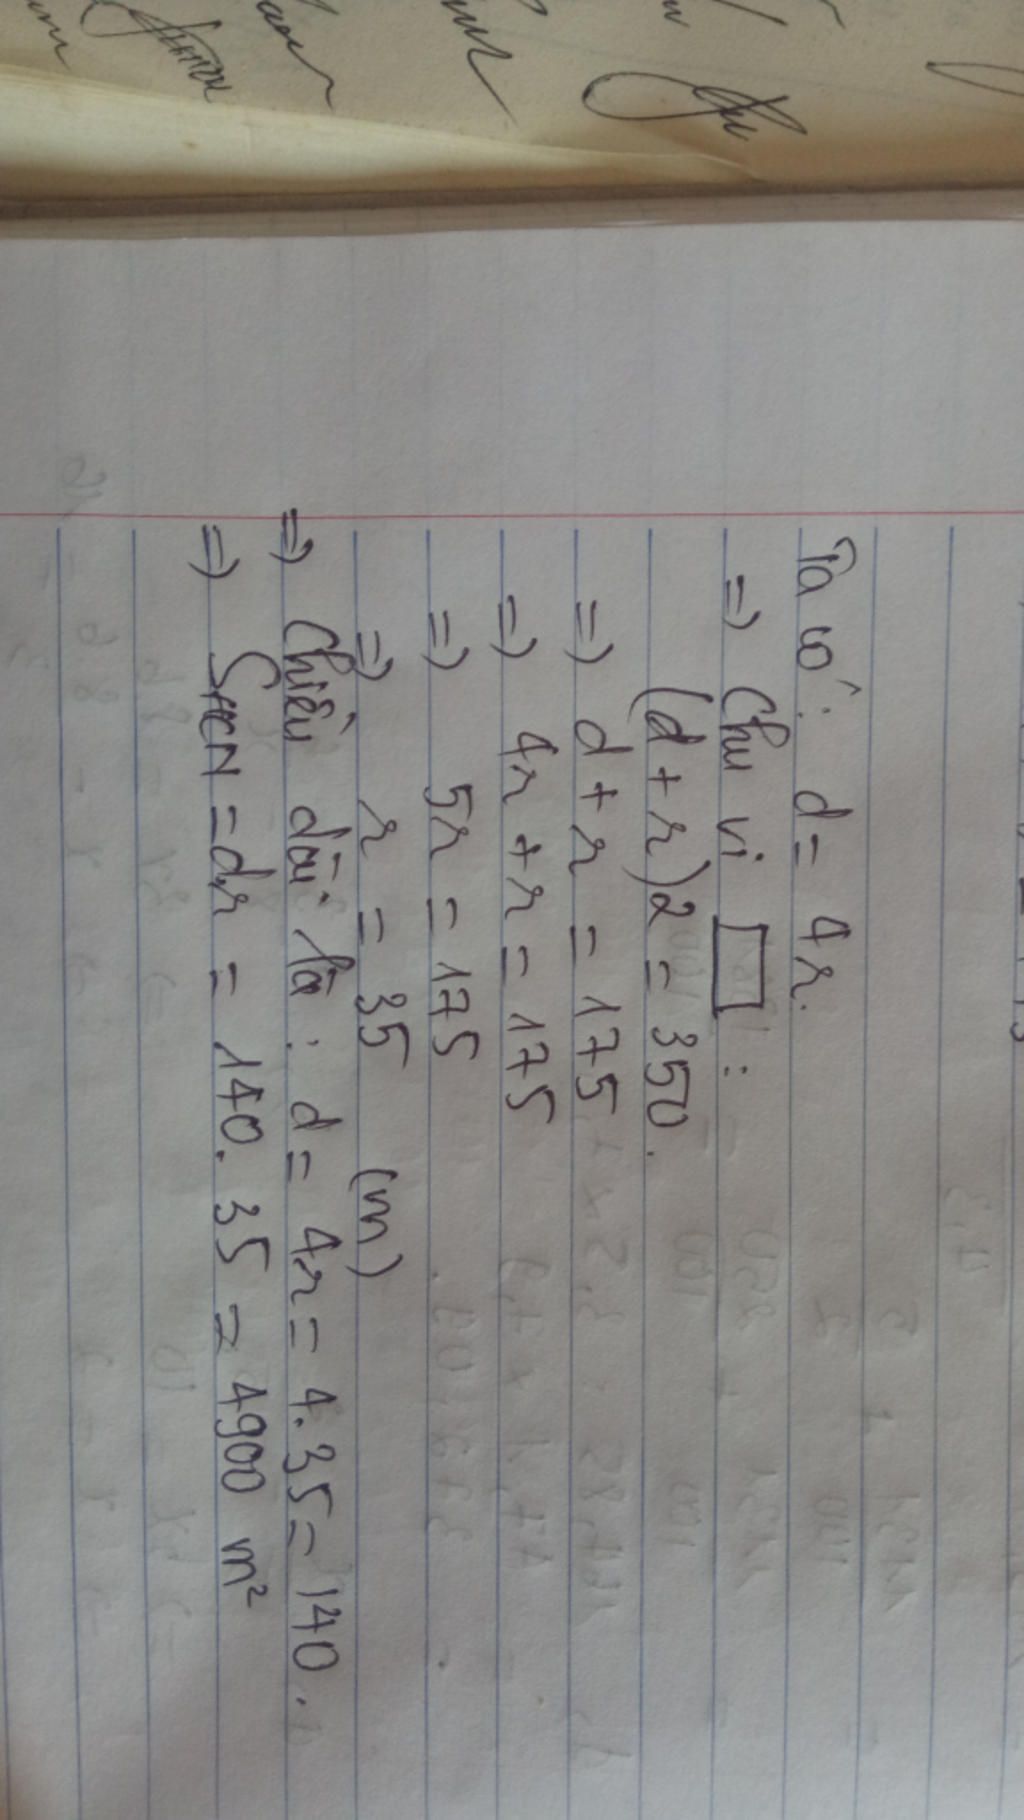 Ta có: d = 4r.
=> Chu vi ▭ :
(d + r)2 = 350.
=> d + r = 175
=> 4r + r = 175
=> 5r = 175
=> r = 35 (m)
=> Chiều dài là : d = 4r = 4.35 = 140.
=> SHCN = d.r = 140.35 = 4900 m²